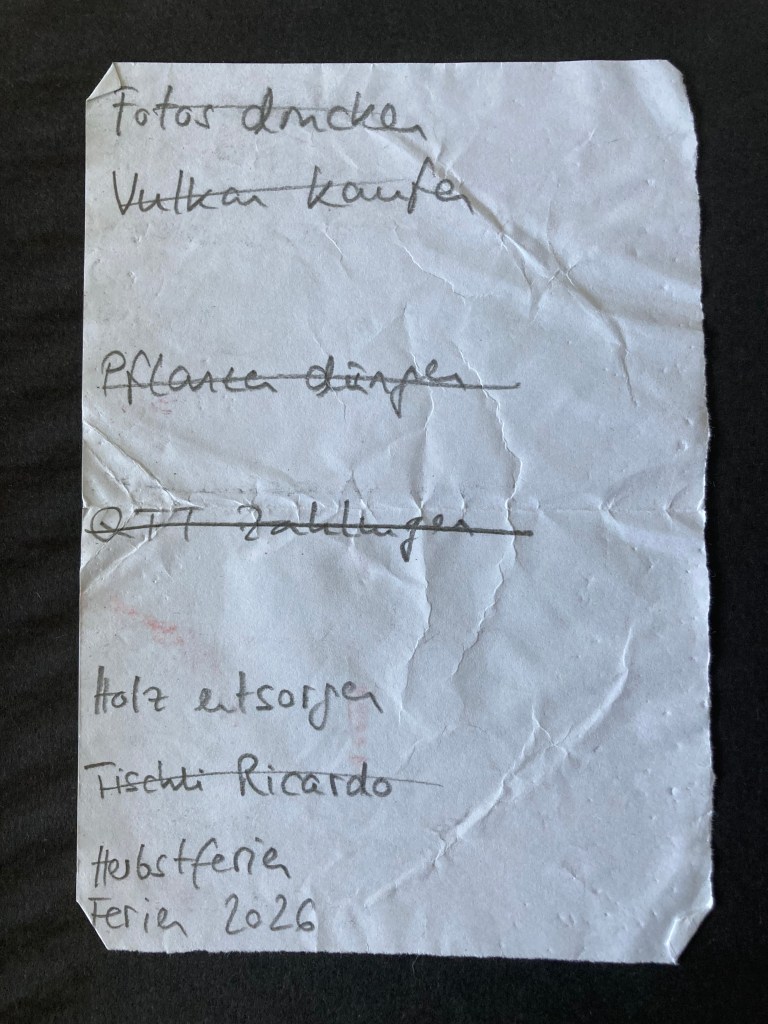 Fotos drucken
Vulkan kaufen
Pflanzen düngen
QTT Zahlungen
Holz entsorgen
Tischli Ricardo
Herbstferien
Ferien 2026